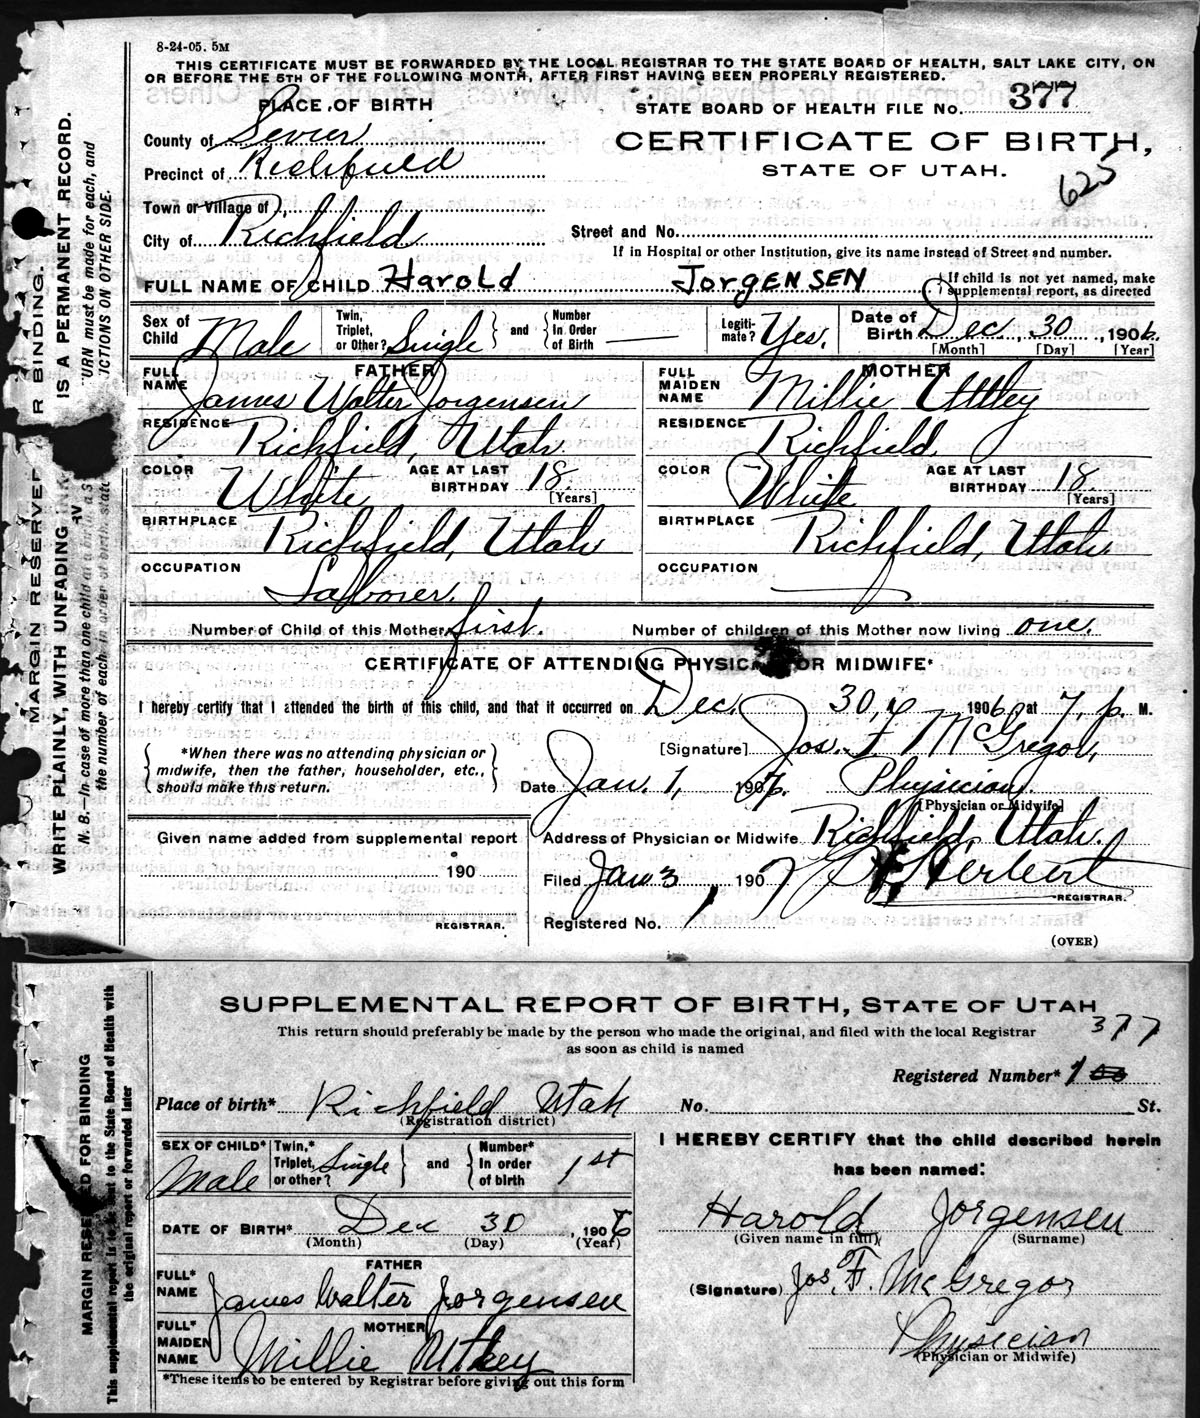 8-24-05. 5M
THIS CERTIFICATE MUST BE FORWARDED BY THE LOCAL REGISTRAR TO THE STATE BOARD OF HEALTH, SALT LAKE CITY, ON
OR BEFORE THE 5TH OF THE FOLLOWING MONTH, AFTER FIRST HAVING BEEN PROPERLY REGISTERED.
PLACE OF BIRTH
STATE BOARD OF HEALTH FILE No. 377
County of Sevier
CERTIFICATE OF BIRTH,
Precinct of Richfield
STATE OF UTAH.
625
Town or Village of
City of Richfield
Street and No.
If in Hospital or other Institution, give its name instead of Street and number.
FULL NAME OF CHILD Harold JORGENSEN
If child is not yet named, make
supplemental report, as directed
Sex of Child Male
Twin, Triplet, or Other? Single } and { Number In Order of Birth
Legitimate? Yes.
Date of Birth Dec. 30, 1906.
[Month] [Day] [Year]
FATHER
FULL NAME James Walter Jorgensen
RESIDENCE Richfield, Utah.
COLOR White
AGE AT LAST BIRTHDAY 18
[Years]
BIRTHPLACE Richfield, Utah
OCCUPATION Laborer.
MOTHER
FULL MAIDEN NAME Millie Uttley
RESIDENCE Richfield,
COLOR White
AGE AT LAST BIRTHDAY 18
[Years]
BIRTHPLACE Richfield, Utah.
OCCUPATION
Number of Child of this Mother first.
Number of children of this Mother now living one.
CERTIFICATE OF ATTENDING PHYSICIAN OR MIDWIFE*
I hereby certify that I attended the birth of this child, and that it occurred on Dec. 30, 1906, at 7, p. M.
*When there was no attending physician or
midwife, then the father, householder, etc.,
should make this return.
[Signature] Jos. F. McGregor,
Date Jan. 1, 1907. Physician.
[Physician or Midwife]
Given name added from supplemental report
190
REGISTRAR.
Address of Physician or Midwife Richfield, Utah.
Filed Jan 3, 1907 Herbert
REGISTRAR.
Registered No.
(OVER)
MARGIN RESERVED FOR BINDING.
WRITE PLAINLY, WITH UNFADING INK. THIS IS A PERMANENT RECORD.
N. B.—In case of more than one child at a birth, a S RETURN must be made for each, and
the number of each, in order of birth, stated INSTRUCTIONS ON OTHER SIDE.
SUPPLEMENTAL REPORT OF BIRTH, STATE OF UTAH
This return should preferably be made by the person who made the original, and filed with the local Registrar
as soon as child is named
377
Registered Number* 1
Place of birth* Richfield Utah
(Registration district)
No. St.
SEX OF CHILD* Male
Twin,* Triplet, or other? Single } and { Number* In order of birth 1st
DATE OF BIRTH* Dec 30, 1906
(Month) (Day) (Year)
FATHER
FULL* NAME James Walter Jorgensen
MOTHER
FULL* MAIDEN NAME Millie Utley
*These items to be entered by Registrar before giving out this form
I HEREBY CERTIFY that the child described herein
has been named:
Harold Jorgensen
(Given name in full) (Surname)
(Signature) Jos. F. McGregor
Physician
(Physician or Midwife)
MARGIN RESERVED FOR BINDING
This supplemental report is to be sent to the State Board of Health with
the original report or forwarded later